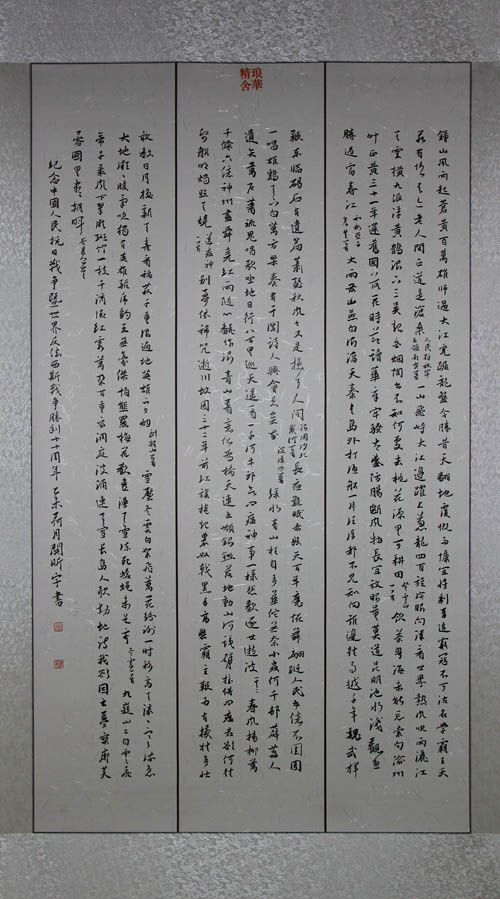 琅華
精舍
鍾山風雨起蒼黃百萬雄師過大江虎踞龍盤今勝昔天翻地覆慨而慷宜將剩勇追窮寇不可沽名學霸王天
若有情天亦老人間正道是滄桑 人民解放軍占領南京一首 一山飛峙大江邊躍上蔥蘢四百旋冷眼向洋看世界熱風吹雨灑江
天雲橫九派浮黃鶴浪下三吳起白煙陶令不知何處去桃花源里可耕田 登廬山一首 飲茶粵海未能忘索句渝州
葉正黃三十一年還舊國落花時節讀華章牢騷太盛防腸斷風物長宜放眼量莫道昆明池水淺觀魚
勝過富春江 和柳亞子先生一首 大雨落幽燕白浪滔天秦皇島外打魚船一片汪洋都不見知向誰邊往事越千年魏武揮
鞭東臨碣石有遺篇蕭瑟秋風今又是換了人間 浪淘沙北戴河一首 長夜難眠赤縣天百年魔怪舞翩躚人民五億不團圓
一唱雄雞天下白萬方樂奏有于闐詩人興會更無前 浣溪沙一首 綠水青山枉自多華佗無奈小蟲何千村薜荔人
遺矢萬戶蕭疏鬼唱歌坐地日行八萬里巡天遙看一千河牛郎欲問瘟神事一樣悲歡逐逝波 其一 春風楊柳萬
千條六億神州盡舜堯紅雨隨心翻作浪青山著意化為橋天連五嶺銀鋤落地動山河鐵臂搖借問瘟君欲何往
紙船明燭照天燒 送瘟神二首 別夢依稀咒逝川故園三十二年前紅旗捲起農奴戟黑手高懸霸主鞭為有犧牲多壯
敢教日月換新天喜看稻菽千重浪遍地英雄下夕煙 到韶山一首 雪壓冬雲白絮飛萬花紛謝一時稀高天滾滾寒流急
大地微微暖氣吹獨有英雄驅虎豹更無豪傑怕熊羆梅花歡喜漫天雪凍死蒼蠅未足奇 冬雲一首 九嶷山上白雲飛
帝子乘風下翠微斑竹一枝千滴淚紅霞萬朵百重衣洞庭波湧連天雪長島人歌動地詩我欲因之夢寥廓芙
蓉國里盡朝暉 答友人一首
紀念中國人民抗日戰爭暨世界反法西斯戰爭勝利七十周年乙未荷月關昕宇書